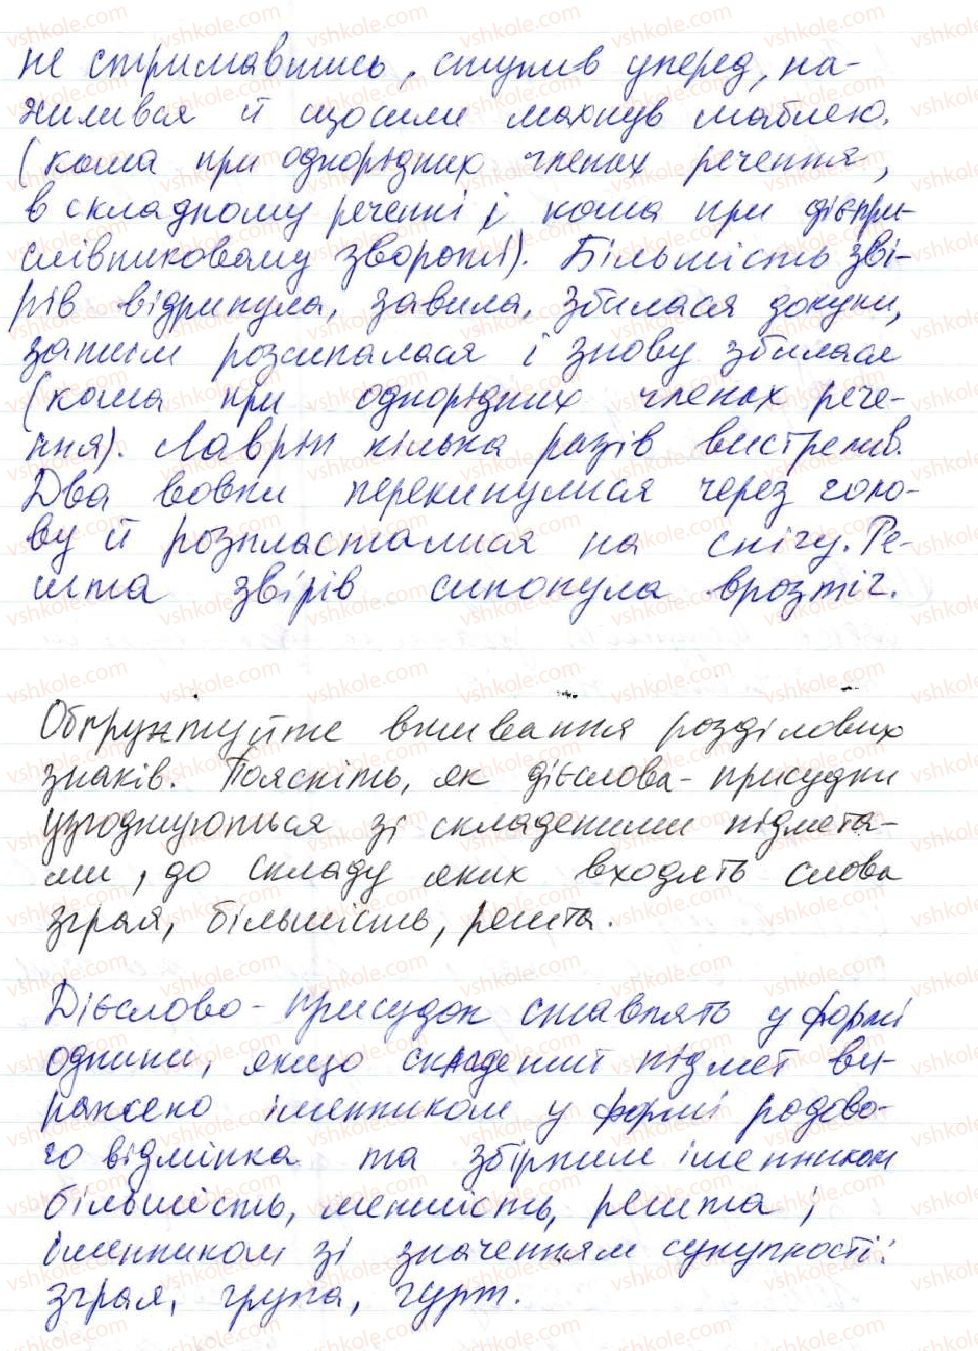 не стримавшись, ступив уперед, на-
жилився й щосили махнув шаблею.
(кома при однорідних членах речення,
в складному реченні і кома при дієпри-
слівниковому звороті). Більшість зві-
рів відринула, завила, збилася докупи,
затим розсипалася і знову збилася
(кома при однорідних членах рече-
ння). Лаврін кілька разів вистрелив.
Два вовки перекинулися через голо-
ву й розпласталися на снігу. Ре-
шта звірів сипонула врозтіч.
Обґрунтуйте вживання розділових
знаків. Поясніть, як дієслова-присудки
узгоджуються зі складеними підмета-
ми, до складу яких входять слова
зграя, більшість, решта.
Дієслово-присудок ставлять у формі
однини, якщо складений підмет ви-
ражено іменником у формі родово-
го відмінка та збірним іменником
більшість, меншість, решта;
іменником зі значенням сукупності:
зграя, група, гурт.